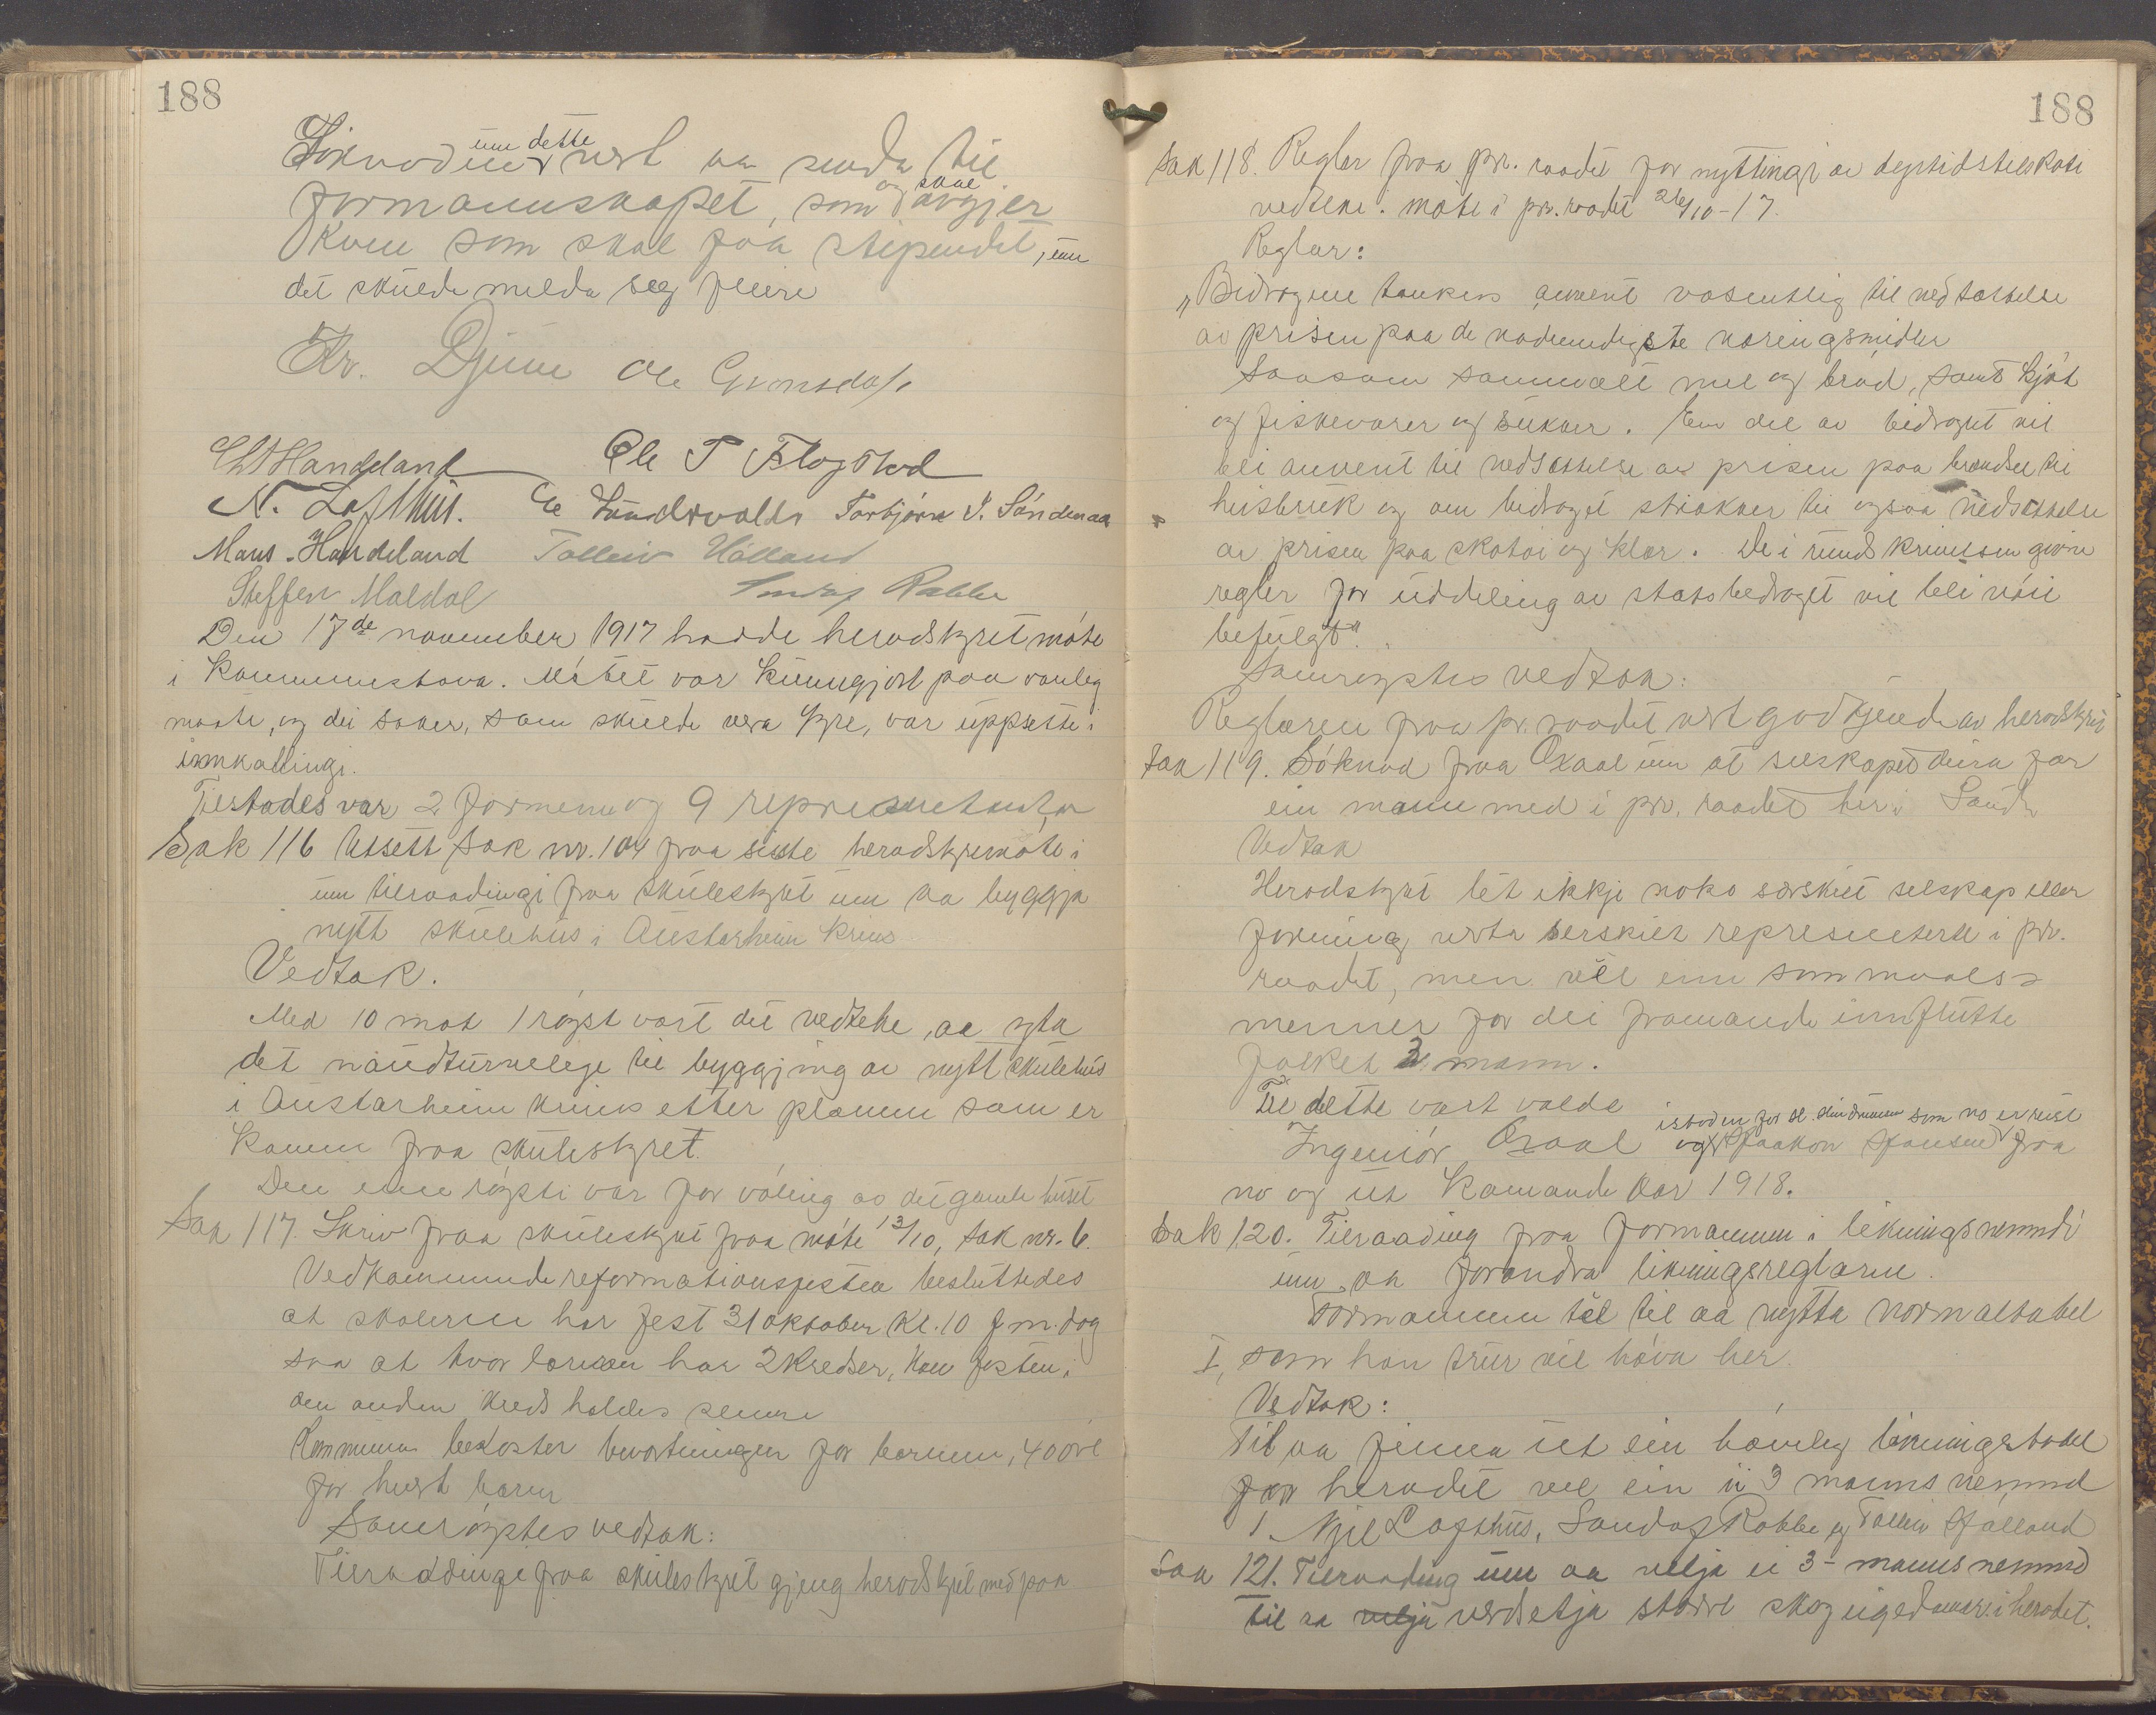 188
Söknoden um dette vert aa senda til
formannskapet, som og skal avgjer
kven som skal faa stipendet, um
det skulde melda seg fleire
Kr. Djuve Ole Grimsdal
Chr Handeland Ole T Flogstad
N. Lofthus. Torbjörn S. Söndenaa
Mans Handeland Tolleiv Hålland
Steffen Maldal Sondof Rabbe
Den 17de november 1917 hadde heradstyret möte
i Kommunestova. Mötet var kunngjort paa vanleg
maate, og dei saker, som skulde vera fyre, var uppsette i
innkallingi.
Tilstades var 2 formenn og 9 representantar
Sak 116 Utsett sak nr. 104 fraa siste heradstyremöte i
um tilraadingi fraa skulestyret um aa byggja
nytt skulehus i Austarheim krins
Vedtak.
Med 10 mot 1 röyst vart det vedteke, aa yta
det naudturvelege til byggjing av nytt skulehus
i Austarheim krins etter planen som er
komen fraa skulestyret.
Den eine röysti var for völing av det gamle huset
Sak 117. Skriv fraa skulestyret fraa möte 13/10, sak nr. 6.
Vedkommende reformationsfesten besluttedes
at skolerne har fest 31 oktober kl. 10 f.m. dog
saa at hvor læreren har 2 kredser, kan festen i
den anden kreds holdes senere
Kommunen bekoster bevertningen for barnen, 40 öre
for hvert barn
Samröystes vedtak:
Tilraadingi fraa skulestyret gjeng heradstyret med paa
188
Sak 118. Reglar fraa pr. raadet for nyttingi av dyrtidstilskott
vedteke i möte i pr. raadet 26/10-17.
Reglar:
"Bidragene tænkes anvent væsentlig til nedsættelse
av prisen paa de nödvendigste næringsmidler
saasom sammalt mel og bröd, samt kjöt
og fiskevarer og sukker. En del av bidraget vil
bli anvent til nedsættelse av prisen paa brændsel til
husbruk og om bidraget strækker til ogsaa nedsættelse
av prisen paa skotöi og klær. De i rundskrivelsen givne
regler for uddeling av statsbidraget vil bli nöie
befulgt".
Samröystes vedtak:
Reglaren fraa pr. raadet vert godkjende av heradstyret
Sak 119. Söknad fraa Oxaal um at selskapet deira faar
ein mann med i pr. raadet her i Sauda
Vedtak
Heradstyret let ikkje noko særskilt selskap eller
forening verta serskilt representert i pr.
raadet, men vel enn som maals-
menner for dei framande innflutte
folket 2 mann.
Til dette vart valde
Ingeniör Oxaal og Haakon Hansen istaden for ol. Amundsen som no er reist fraa
no og ut komande aar 1918.
Sak 120. Tilraading fraa formannen i likningsnemndi
um aa forandra likningsreglarne.
Formannen tel til aa nytta normaltabel
I, som han trur vil höva her.
Vedtak:
Til aa finna ut ein höveleg likningstabel
for heradet vel ein ei 3 manns nemnd
1. Njel Lofthus, Sondof Rabbe og Tolleiv Hålland
Sak 121. Tilraading um aa velja ei 3-manns nemnd
til aa velja verdsetja större skogeigedomar i heradet.